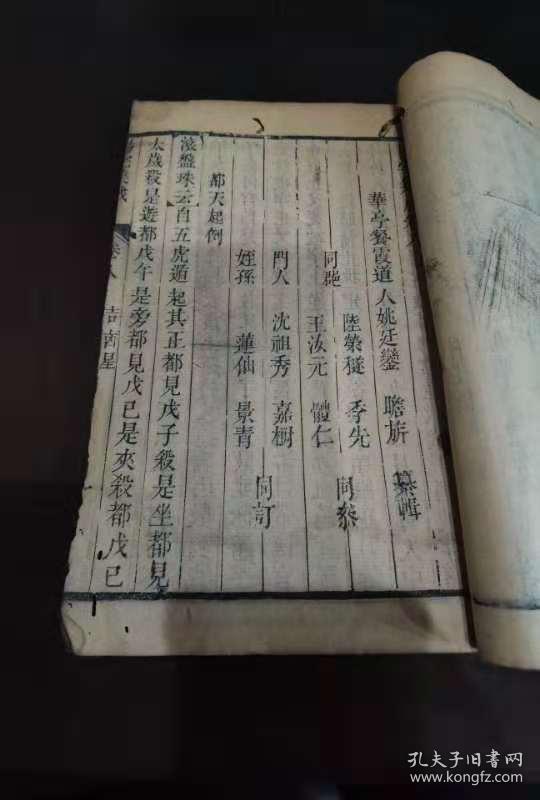 華亭餐霞道人姚廷鑾 瞻旂 纂輯
同邑 陸榮稷 季先 同參
王汝元 體仁
門人 沈祖秀 嘉樹 同訂
姪孫 蓮仙 景青
都天起例
滾盤珠云自五虎遁起其正都見戊子殺是坐都見
太歲殺是遊都戊午是旁都見戊已是夾殺都戊已
吉凶星
孔夫子旧书网
www.kongfz.com